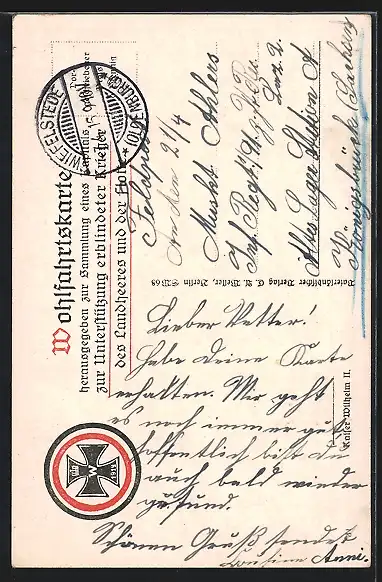 Wohlfahrtskarte
herausgegeben zur Sammlung eines Kapitals
zur Unterstützung erblindeter Krieger
des Landheeres und der Flotte
WIEFELSTEDE
(OLDENBURG)
Feldpost
An den
Muskt. Ahlers
Inf. Regt.
Altes Lager Station A
Königsbrück Sachsen
Vaterländischer Verlag C. A. Weller, Berlin SW 68
Kaiser Wilhelm II.
Lieber Vetter!
Habe Deine Karte
erhalten. Mir geht
es noch immer gut
hoffentlich bist du
auch bald wieder
gesund.
Schönen Gruß sendet
Cousine Anni.
W
1914